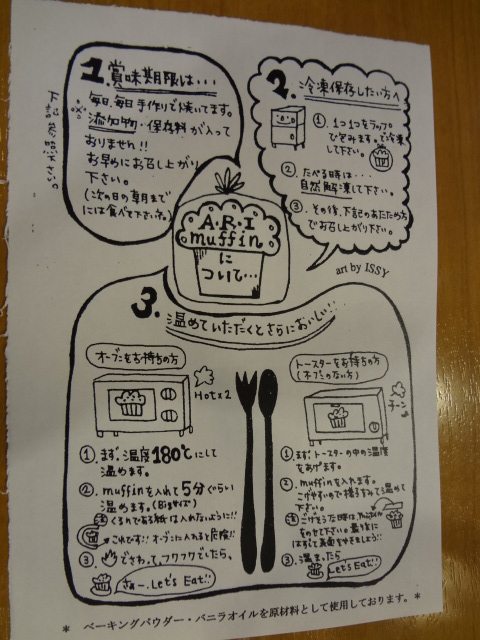 1. 賞味期限は・・・
毎日、毎日手作りで焼いてます。
添加物・保存料が入って
おりません!!
お早めにお召し上がり
下さい。
(次の日の朝までに
には食べて下さいネ。)
下記参照下さい。
2. 冷凍保存したい方へ
①. 1つ1つをラップで
冷凍
して下さい。
②. たべる時は・・・
自然解凍して下さい。
③. その後、下記のあたため方
でお召し上がり下さい。
A.R.I
muffin
に
ついて…
art by ISSY
3. 温めていただくとさらにおいしい!!
オーブンをお持ちの方
Hot×2
①. まず、温度180℃にして
温めます。
②. muffinを入れて5分ぐらい
温めます。(Bigサイズ)
くるんである紙は入れないように!!
これです!! オーブンに入れると危険!!
③. でさわって、フワフワでいたら、
さぁー、Let's Eat!!
トースターをお持ちの方
(オーブンのない方)
チーン
①. まず、トースターの中の温度
をあげます。
②. muffinを入れます。
こげやすいので様子をみて温めて
下さい。
こげそうな時は、
をのせて下さい。最後に
はずして表面をやきましょう!!
③. 温まったら
Let's Eat!!
* ベーキングパウダー・バニラオイルを原材料として使用しております。*